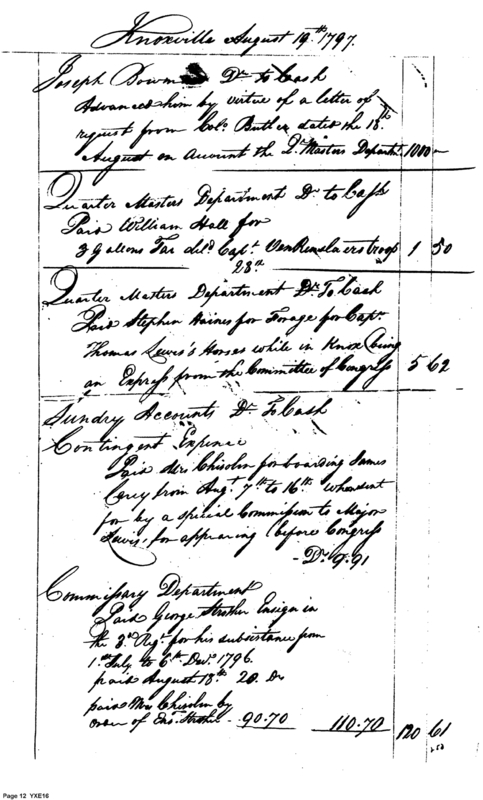 Knoxville August 19th 1797.
Joseph Dr To Cash
Advanced him by virtue of a letter of
request from Colo Butler dated the 18th
August on account the Qr Masters Departmt 1000 –
Quarter Masters Department Dr to Cash
Paid William Hall for
3 Gallons Tar deld Capt Van Renslaers troop 1 50
28th
Quarter Masters Department Dr To Cash
Paid Stephen Haines for Forage for Capt
Thomas Lewis's Horses while in Knox being
an Express from the Committee of Congress 5 62
Sundry Accounts Dr To Cash
Contingent Expence
Paid Mrs Chisolm for boarding James
Carey from Augt 7th to 16th when sent
for by a special Commission to Major
Lewis, for appearing before Congress
- Dr 9.91
Commissary Department
Paid George Strother Ensign in
the 3rd Regt for his subsistance from
1st July to 6th Decr 1796.
paid August 18th 20. Dr
paid Mrs Chisolm by
order of Ens. Strother - 90.70 110.70 120 61
Page 12 YXE16